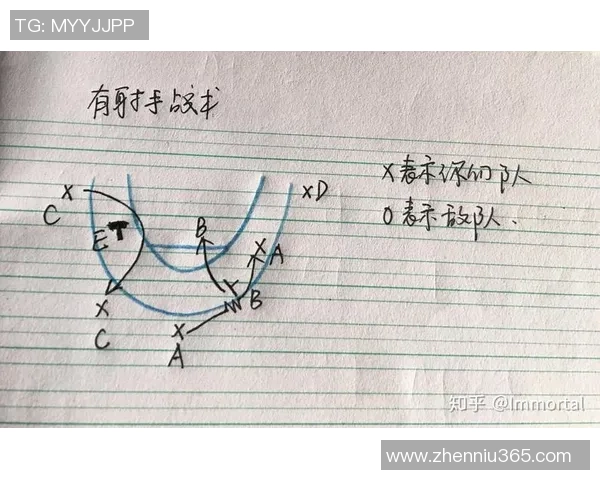 TG: MYYJJPP
有射手战术
X表示你们队
O表示敌队.
X
C
E
B
X
A
X D
X
C
B
X
A
知乎 @Immortal
www.zhenniu365.com